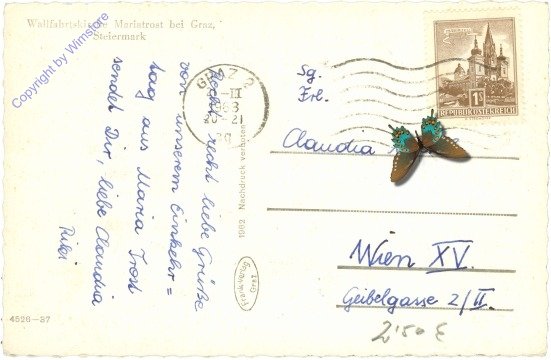 Wallfahrtskirche Mariatrost bei Graz,
Steiermark
Copyright by Wimstore
Recht, recht liebe Grüße
von unserem Einkehr=
tag aus Maria Trost
sendet Dir, liebe Claudia
GRAZ 2
20-21
1962 Nachdruck verboten
Graz
4526-37
Sg.
Frl.
Claudia
Wien XV.
Geibelgasse 2/II.
2'50 €
1S
REPUBLIK ÖSTERREICH